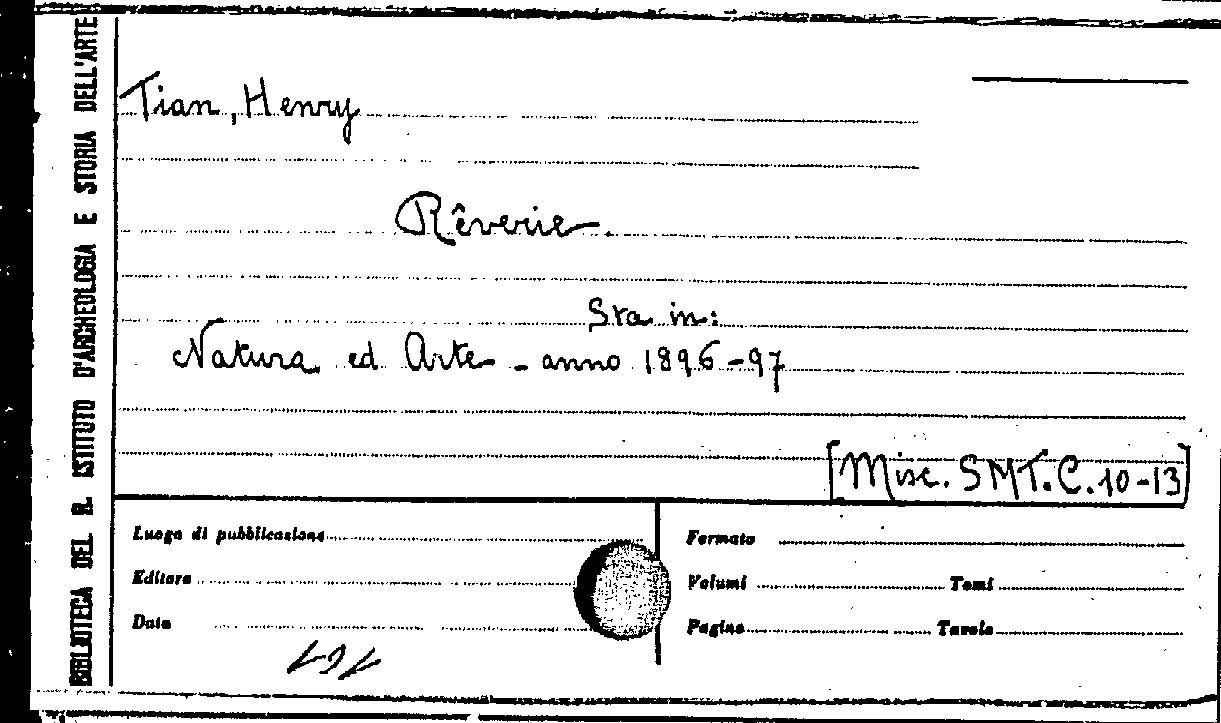 BIBLIOTECA DEL R. ISTITUTO D'ARCHEOLOGIA E STORIA DELL'ARTE
Tian, Henry
Rêverie.
Sta in:
Natura ed Arte - anno 1896-97
[Misc. SMT. C. 10-13]
Luogo di pubblicazione
Editore
Data
Formato
Volumi Tomi
Pagine Tavole